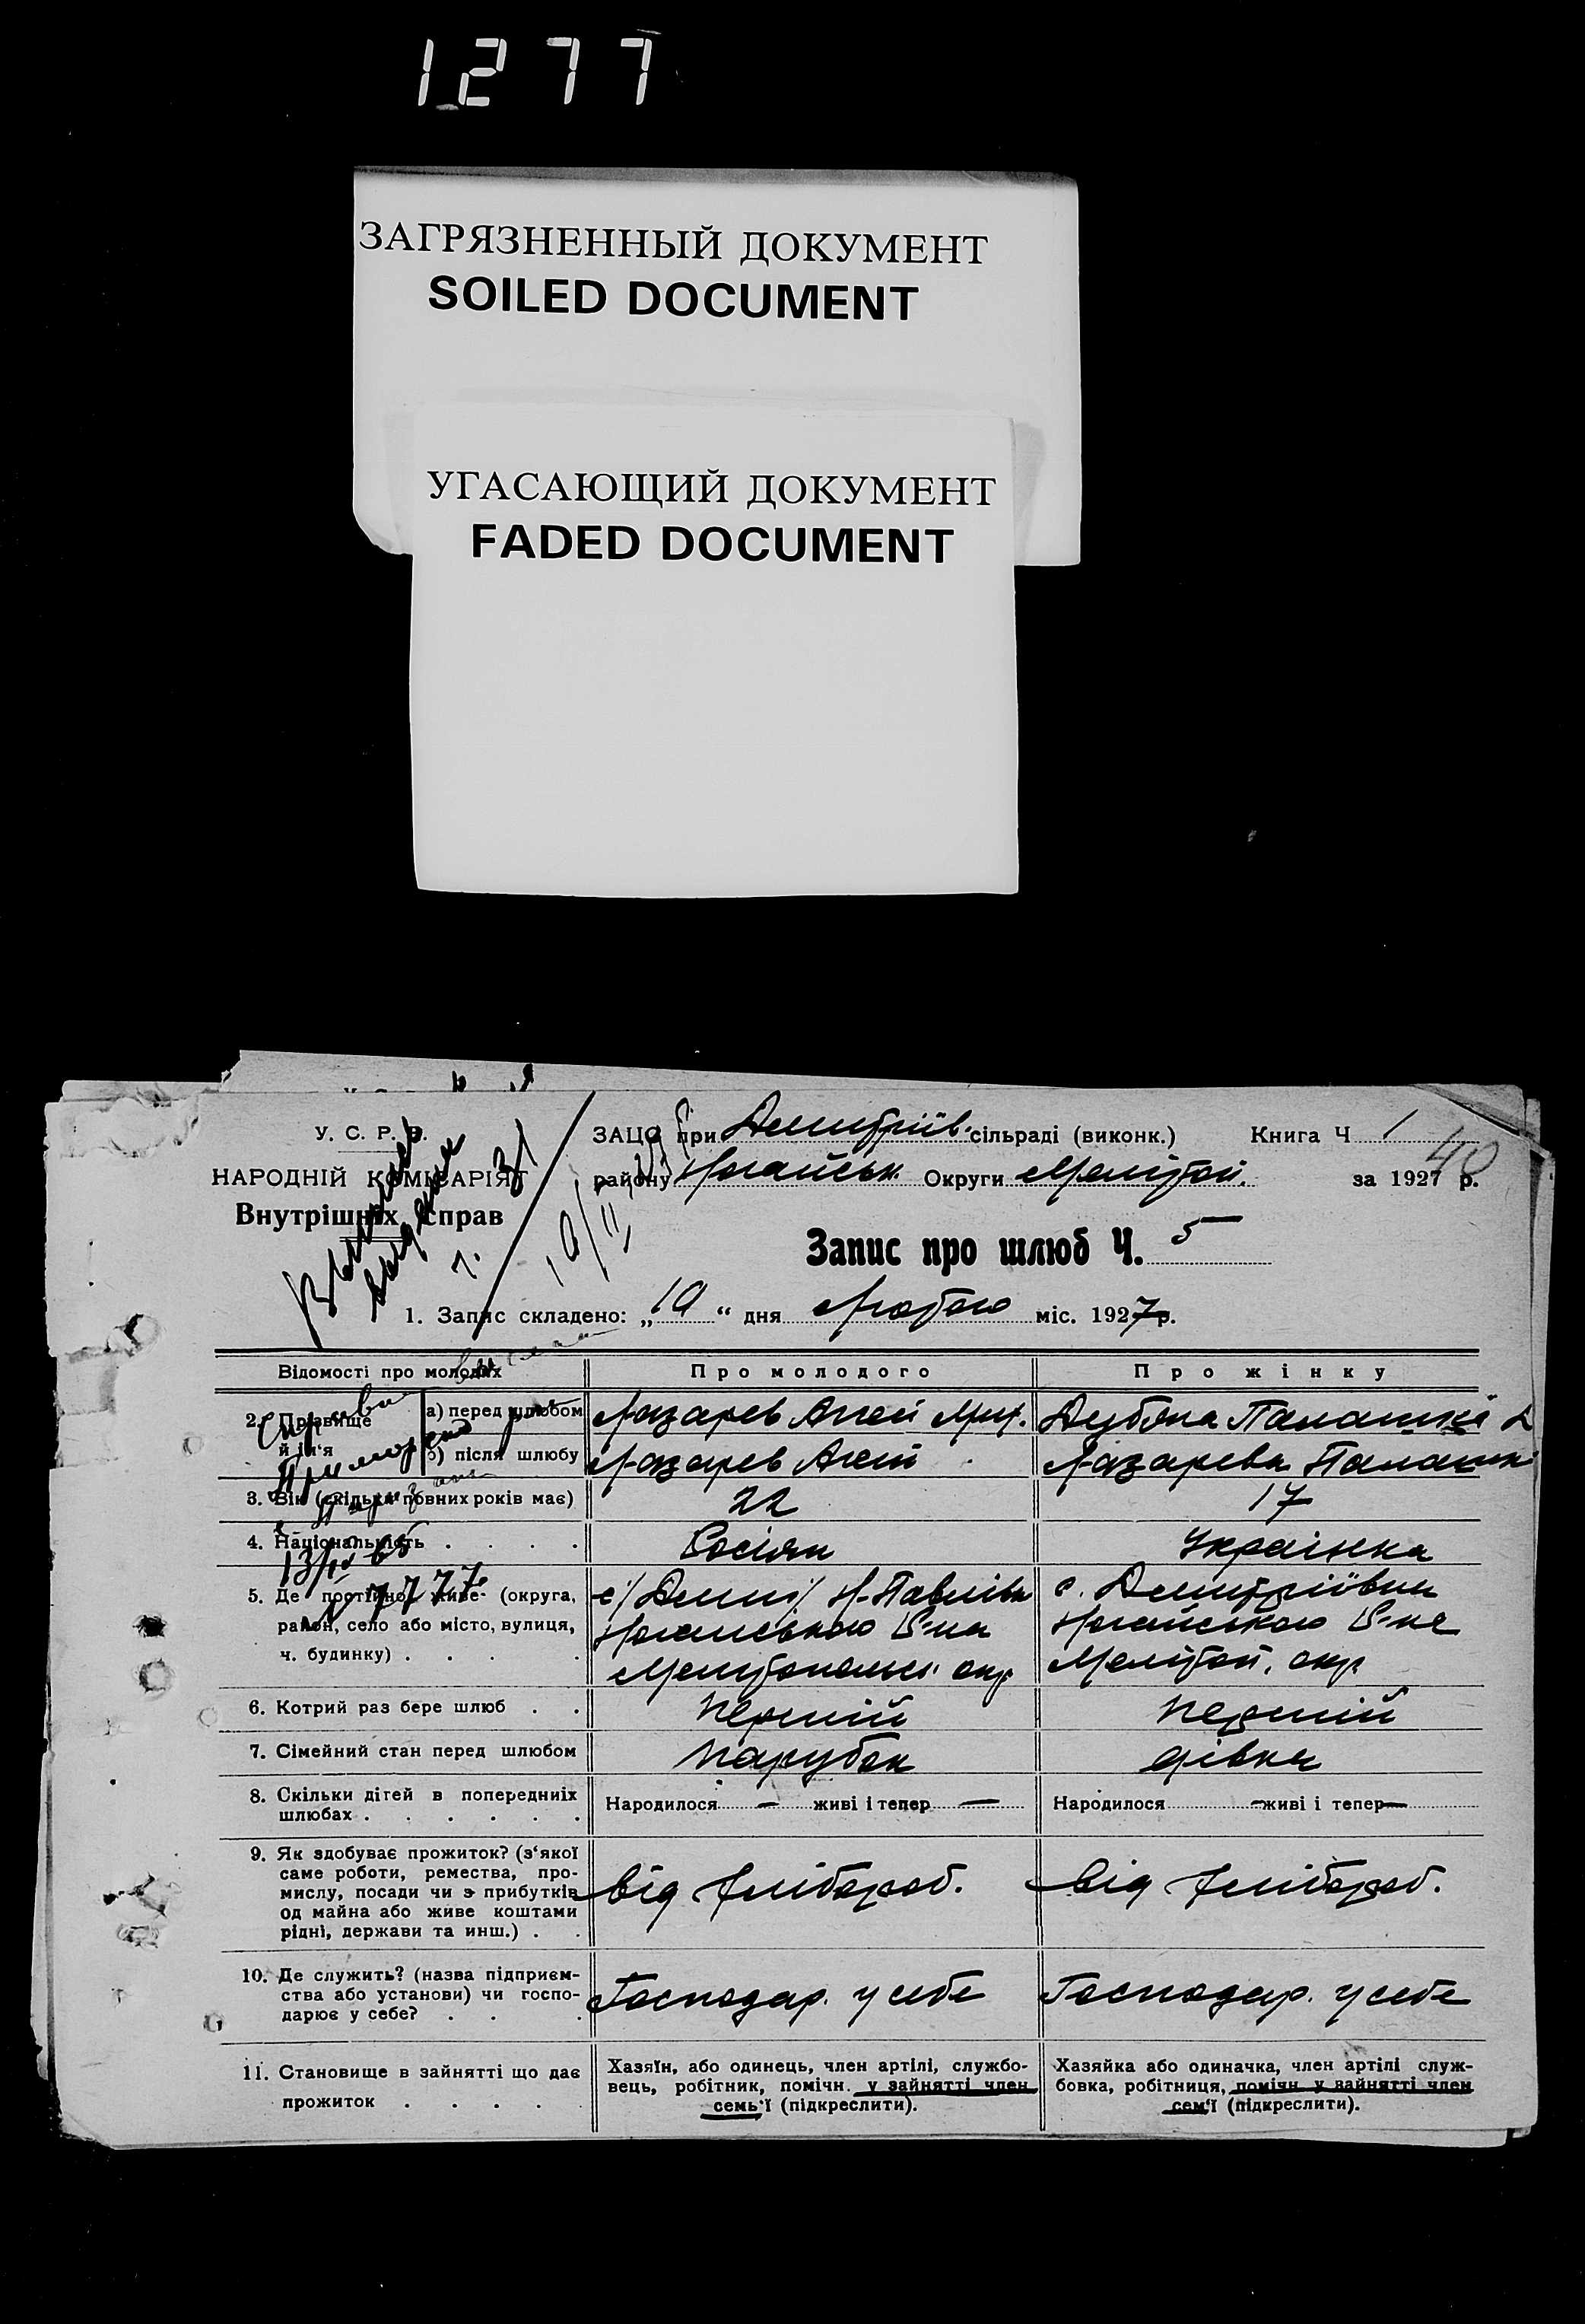 1277
ЗАГРЯЗНЕННЫЙ ДОКУМЕНТ
SOILED DOCUMENT
УГАСАЮЩИЙ ДОКУМЕНТ
FADED DOCUMENT
У. С. Р. Р.
НАРОДНІЙ КОМІСАРІЯТ
Внутрішніх справ
ЗАЦС при Дмитріїв. сільраді (виконк.) Книга Ч 1
району Ногайськ. Округи Мелітоп. за 1927 р.
40
Запис про шлюб Ч. 5
1. Запис складено: „19“ дня Лютого міс. 1927 р.
Відомості про молодих
Про молодого
Про жінку
2. Прізвище й ім'я
а) перед шлюбом
Лазарев Агей
Палашка
б) після шлюбу
Лазарев Агей
Лазарева
3. Вік (скільки повних років має)
22
17
4. Національність . . . .
Росіян
Українка
13/IV 65
N 7777
5. Де постійно живе (округа,
район, село або місто, вулиця,
ч. будинку) . . . .
Н-Павлівка
Ногайського Р-на
Мелитопольс. окр
с. Дмитріївка
Ногайського Р-на
Меліtоп. окр
6. Котрий раз бере шлюб . .
перший
перший
7. Сімейний стан перед шлюбом
парубок
дівка
8. Скільки дітей в попередніх
шлюбах . . . . . .
Народилося — живі і тепер —
Народилося — живі і тепер —
9. Як здобуває прожиток? (з'якої
саме роботи, ремества, про-
мислу, посади чи з прибутків
од майна або живе коштами
рідні, держави та инш.) . .
від хлібороб.
від хлібороб.
10. Де служить? (назва підприєм-
ства або установи) чи госпо-
дарює у себе? . . .
Господар. у себе
Господар. у себе
11. Становище в зайнятті що дає
прожиток . . . .
Хазяїн, або одинець, член артілі, службо-
вець, робітник, помічн. у зайнятті член
семь'ї (підкреслити).
Хазяйка або одиначка, член артілі служ-
бовка, робітниця, помічн. у зайнятті член
сем'ї (підкреслити).